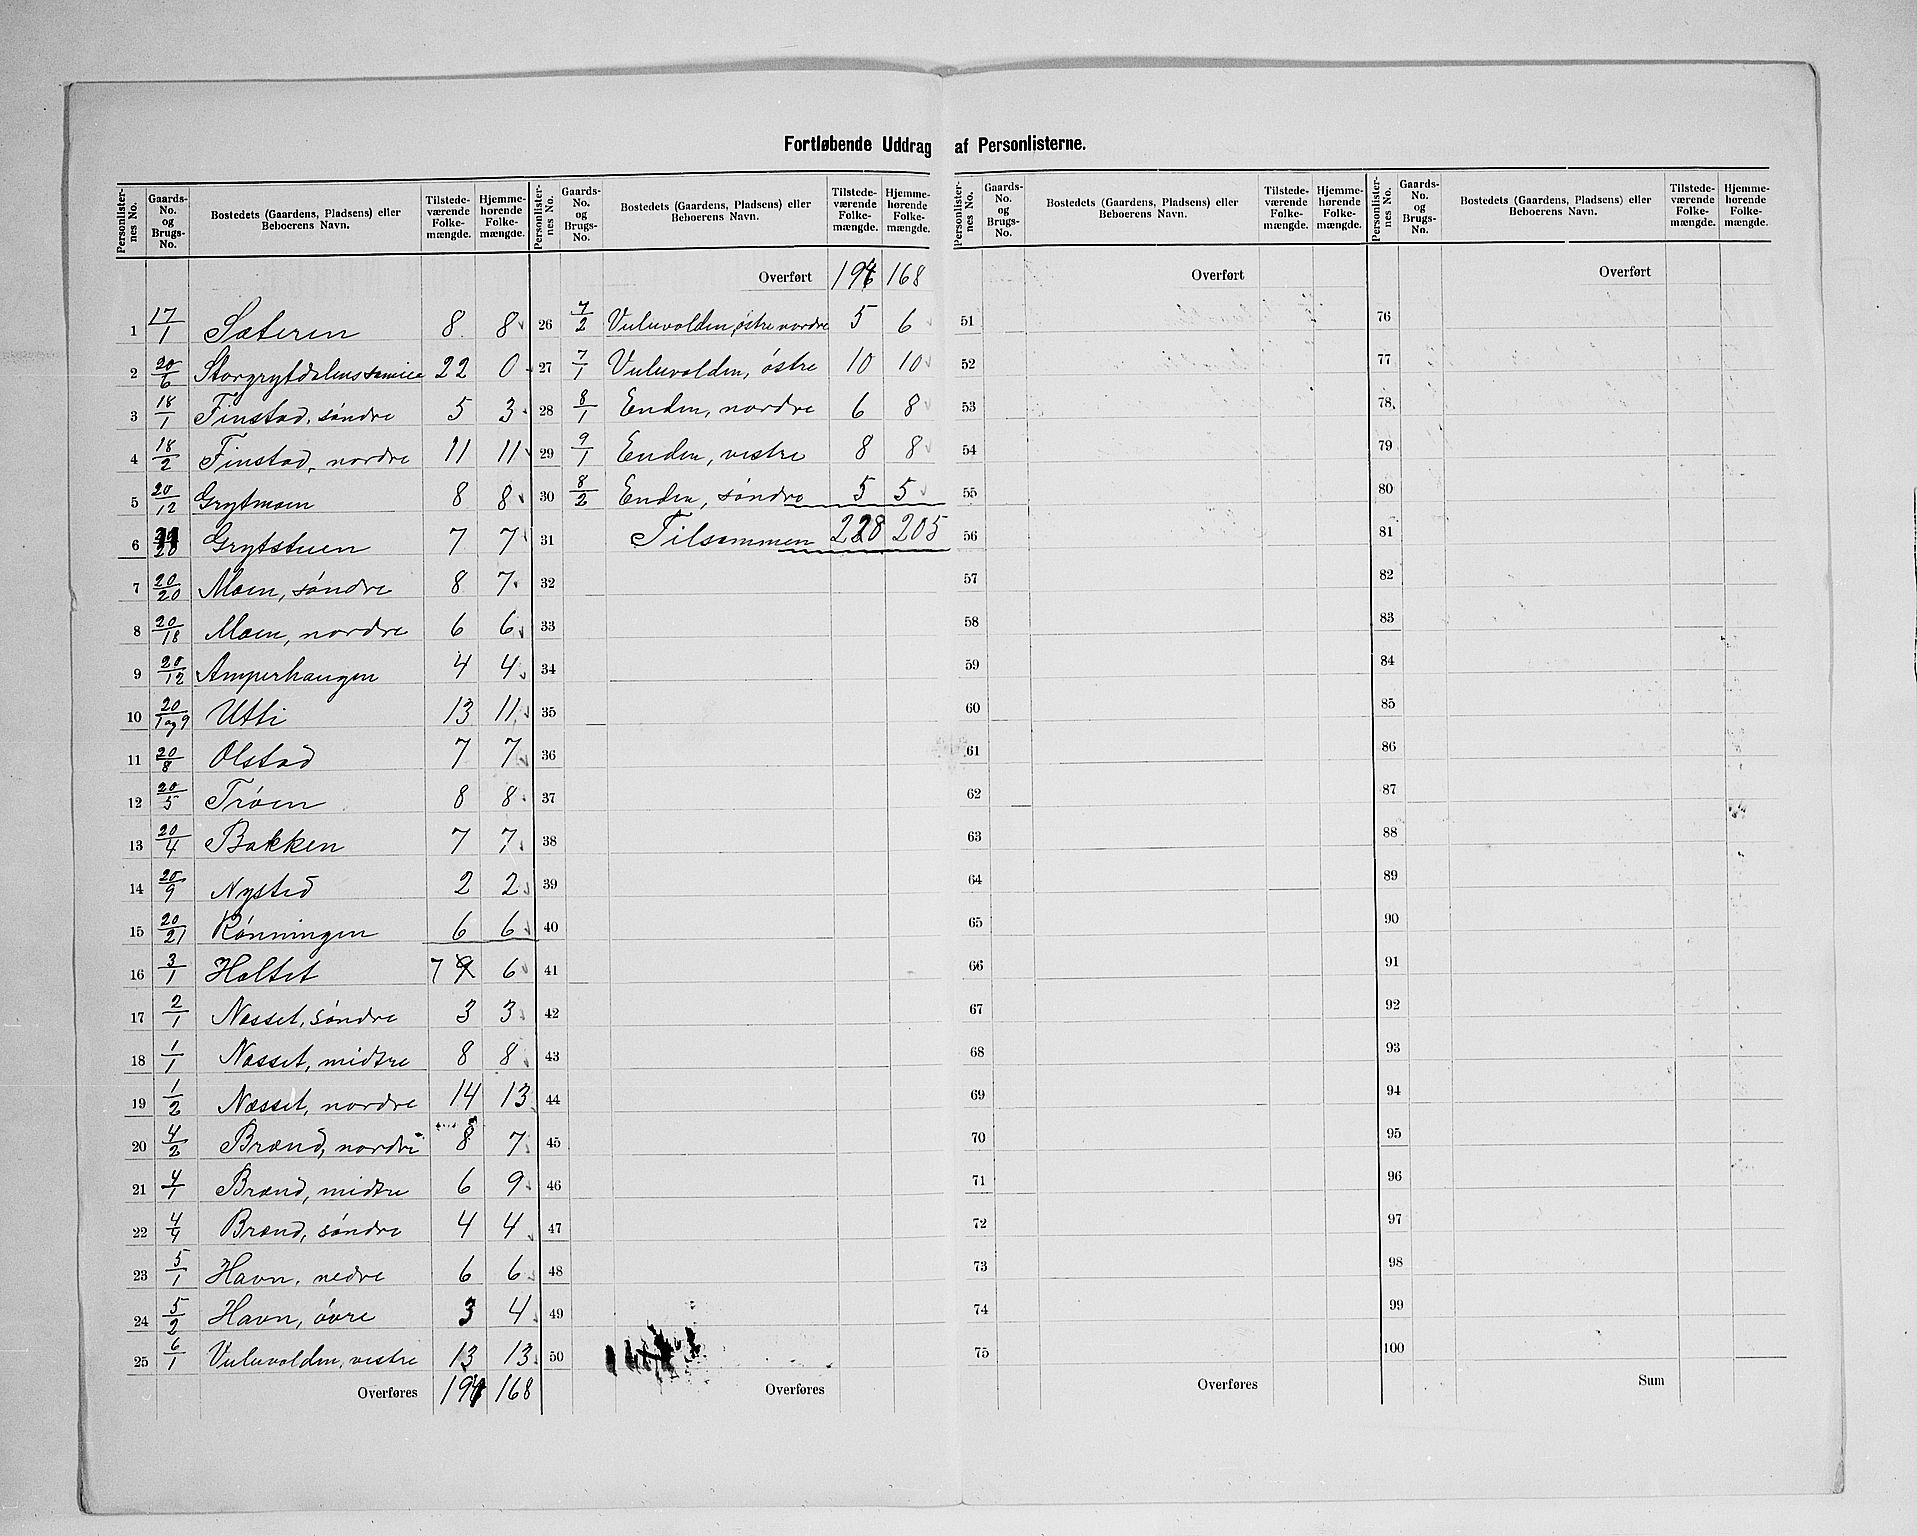 Fortløbende Uddrag af Personlisterne.
Personlisternes No. Gaards-No. og Brugs-No. Bostedets (Gaardens, Pladsens) eller Beboerens Navn. Tilstedeværende Folkemængde. Hjemmehørende Folkemængde.
1 17/1 Sæteren 8 8
2 20/6 22 0
3 18/1 Finstad, søndre 5 3
4 18/2 Finstad, nordre 11 11
5 20/12 Grytmoen 8 8
6 Grytstuen 7 7
7 20/20 Moen, søndre 8 7
8 20/18 Moen, nordre 6 6
9 20/12 Amperhaugen 4 4
10 20/1 og 9 Utti 13 11
11 20/8 Olstad 7 7
12 20/5 Trøen 8 8
13 20/4 Bakken 7 7
14 20/9 Nysted 2 2
15 20/21 Rønningen 6 6
16 3/1 Holtet 7 6
17 2/1 Næsset, søndre 3 3
18 1/1 Næsset, midtre 8 8
19 1/2 Næsset, nordre 14 13
20 4/2 Brænd, nordre 8 7
21 4/1 Brænd, midtre 6 9
22 4/4 Brænd, søndre 4 4
23 5/1 Havn, nedre 6 6
24 5/2 Havn, øvre 3 4
25 6/1 Vuluvolden, vestre 13 13
Overføres 168
Personlisternes No. Gaards-No. og Brugs-No. Bostedets (Gaardens, Pladsens) eller Beboerens Navn. Tilstedeværende Folkemængde. Hjemmehørende Folkemængde.
Overført 168
26 7/2 Vuluvolden, østre nordre 5 6
27 7/1 Vuluvolden, østre 10 10
28 8/1 Enden, nordre 6 8
29 9/1 Enden, vestre 8 8
30 8/2 Enden, søndre 5 5
31 Tilsammen 228 205
32
33
34
35
36
37
38
39
40
41
42
43
44
45
46
47
48
49
50
Overføres
Personlisternes No. Gaards-No. og Brugs-No. Bostedets (Gaardens, Pladsens) eller Beboerens Navn. Tilstedeværende Folkemængde. Hjemmehørende Folkemængde.
Overført
51
52
53
54
55
56
57
58
59
60
61
62
63
64
65
66
67
68
69
70
71
72
73
74
75
Overføres
Personlisternes No. Gaards-No. og Brugs-No. Bostedets (Gaardens, Pladsens) eller Beboerens Navn. Tilstedeværende Folkemængde. Hjemmehørende Folkemængde.
Overført
76
77
78
79
80
81
82
83
84
85
86
87
88
89
90
91
92
93
94
95
96
97
98
99
100
Sum